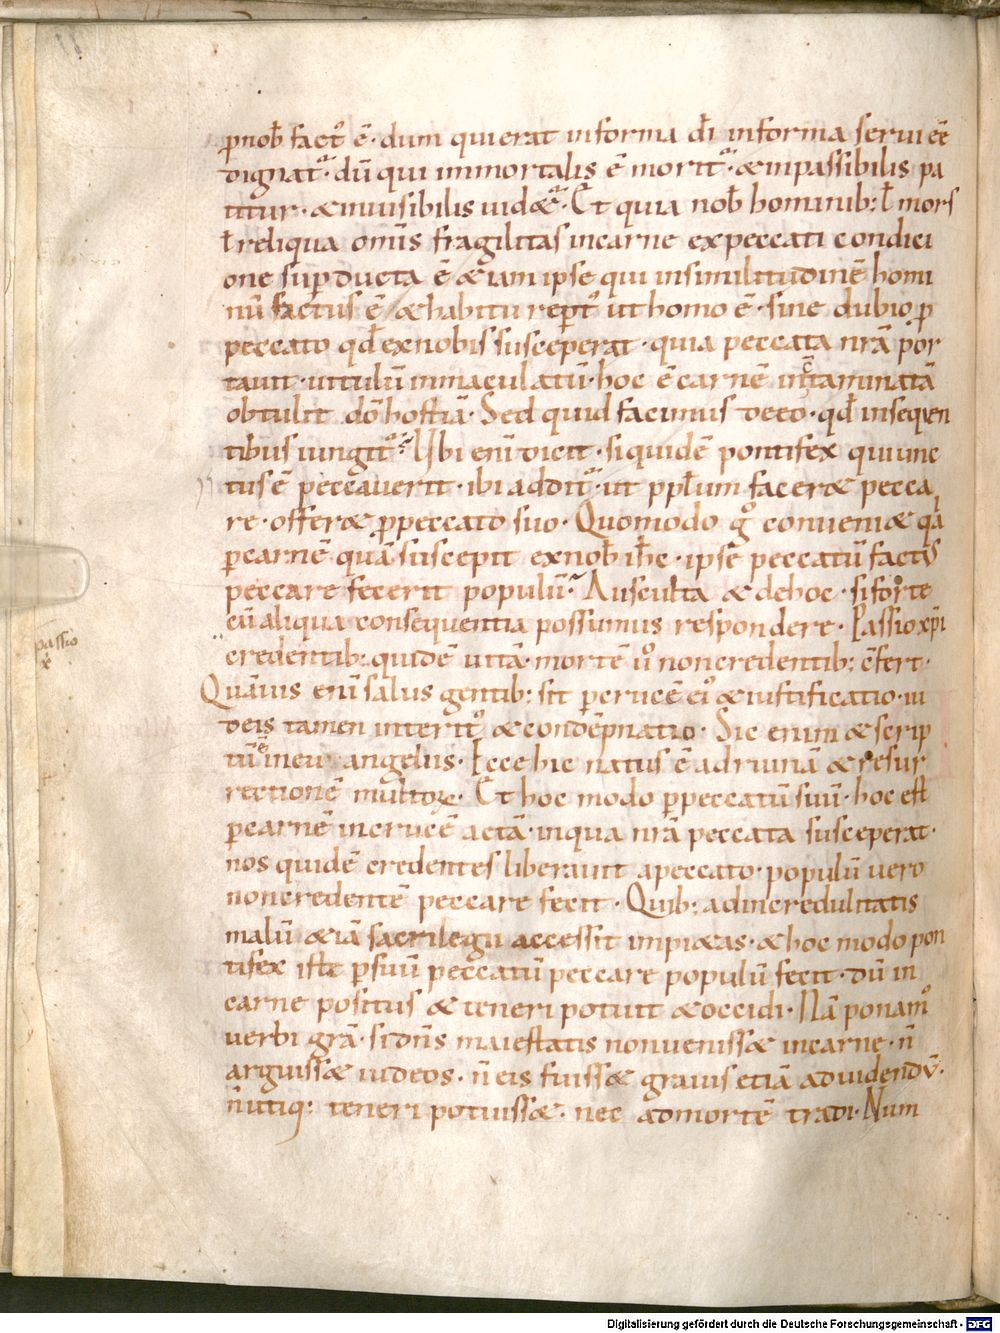 ꝓnob̄ fact᷒ ē· dum qui erat in forma dī in forma serui eē
dignat᷑· dū qui immortalis ē morit᷑· & inpassibilis pa
titur· & inuisibilis uid&᷑· Et quia nob̄ hominib; ƚ mors
ƚ reliqua om̄is fragilitas in carne ex peccati condici
one suꝑducta ē & iam ipse qui in similitudinē homi
nū factus ē & habitu reꝑt᷒ ut homo ē· sine dubio ꝓ
peccato qđ ex nobis susceperat· quia peccata nr̄a por
tauit· uitulū inmaculatū· hoc ē carnē incontaminatā
obtulit dō hostiā· Sed quid facimus de eo· qđ insequen
tibus iungit᷑? Ubi enī dicit· siquidē pontifex qui unc
tus ē peccauerit· ibi addit᷑· ut pp̄lum facer& pecca
re· offer& ꝓ peccato suo· Quomodo gͦ conueni& qa
ꝑ carnē quā suscepit ex nob̄ ih̄c· ipse peccatū fact᷒
peccare fecerit populū? Ausculta & de hoc· si forte
cū aliqua consequentia possumus respondere· Passio xp̄i
credentib; quidē uitā· mortē ů non credentib; c̄fert·
Quāuis enī salus gentib; sit per crucē ei᷒ & iustificatio· iu
deis tamen interit᷒ & condēpnatio· Sic enim & scrip
tū ē in eu angelus· Ecce hic natus ē ad ruinā & resur
rectionē multoꝝ· Et hoc modo ꝑ peccatū suū· hoc est
ꝑ carnē in crucē actā· in qua nr̄a peccata susceperat·
nos quidē credentes liberauit a peccato· populū vero
non credentē peccare fecit· Quib; ad incredulitatis
malū & iā sacrilegii accessit impi&as· & hoc modo pon
tifex iste ꝑ suū peccatū peccare populū fecit· dū in
carne positus & teneri potuit & occidi· Nā ponam᷒
verbi grā· si dn̄s maiestatis non uenissć in carne· n̄
arguiss& iudeos· n̄ eis fuiss& grauis etiā ad uidendū·
n̄ utiq; teneri potuiss&· nec ad mortē tradi· Num
passio
x̄
Digitalisierung gefördert durch die Deutsche Forschungsgemeinschaft - DFG